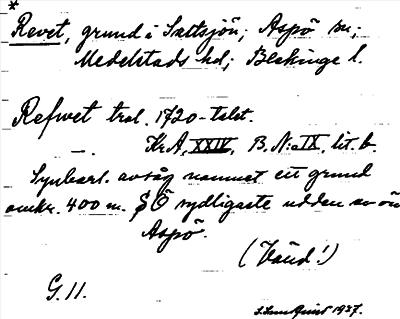 *
Revet, grund i Saltsjön; Aspö sn;
Medelstads hd; Blekinge l.
Refwet trol. 1720-talet.
Kr.A, XXIV, B. N:o IX, lit. b.
Synbarl. avsåg namnet ett grund
omkr. 400 m. SÖ sydligaste udden av ön
Aspö.
(Vänd!)
G. 11.
1937.